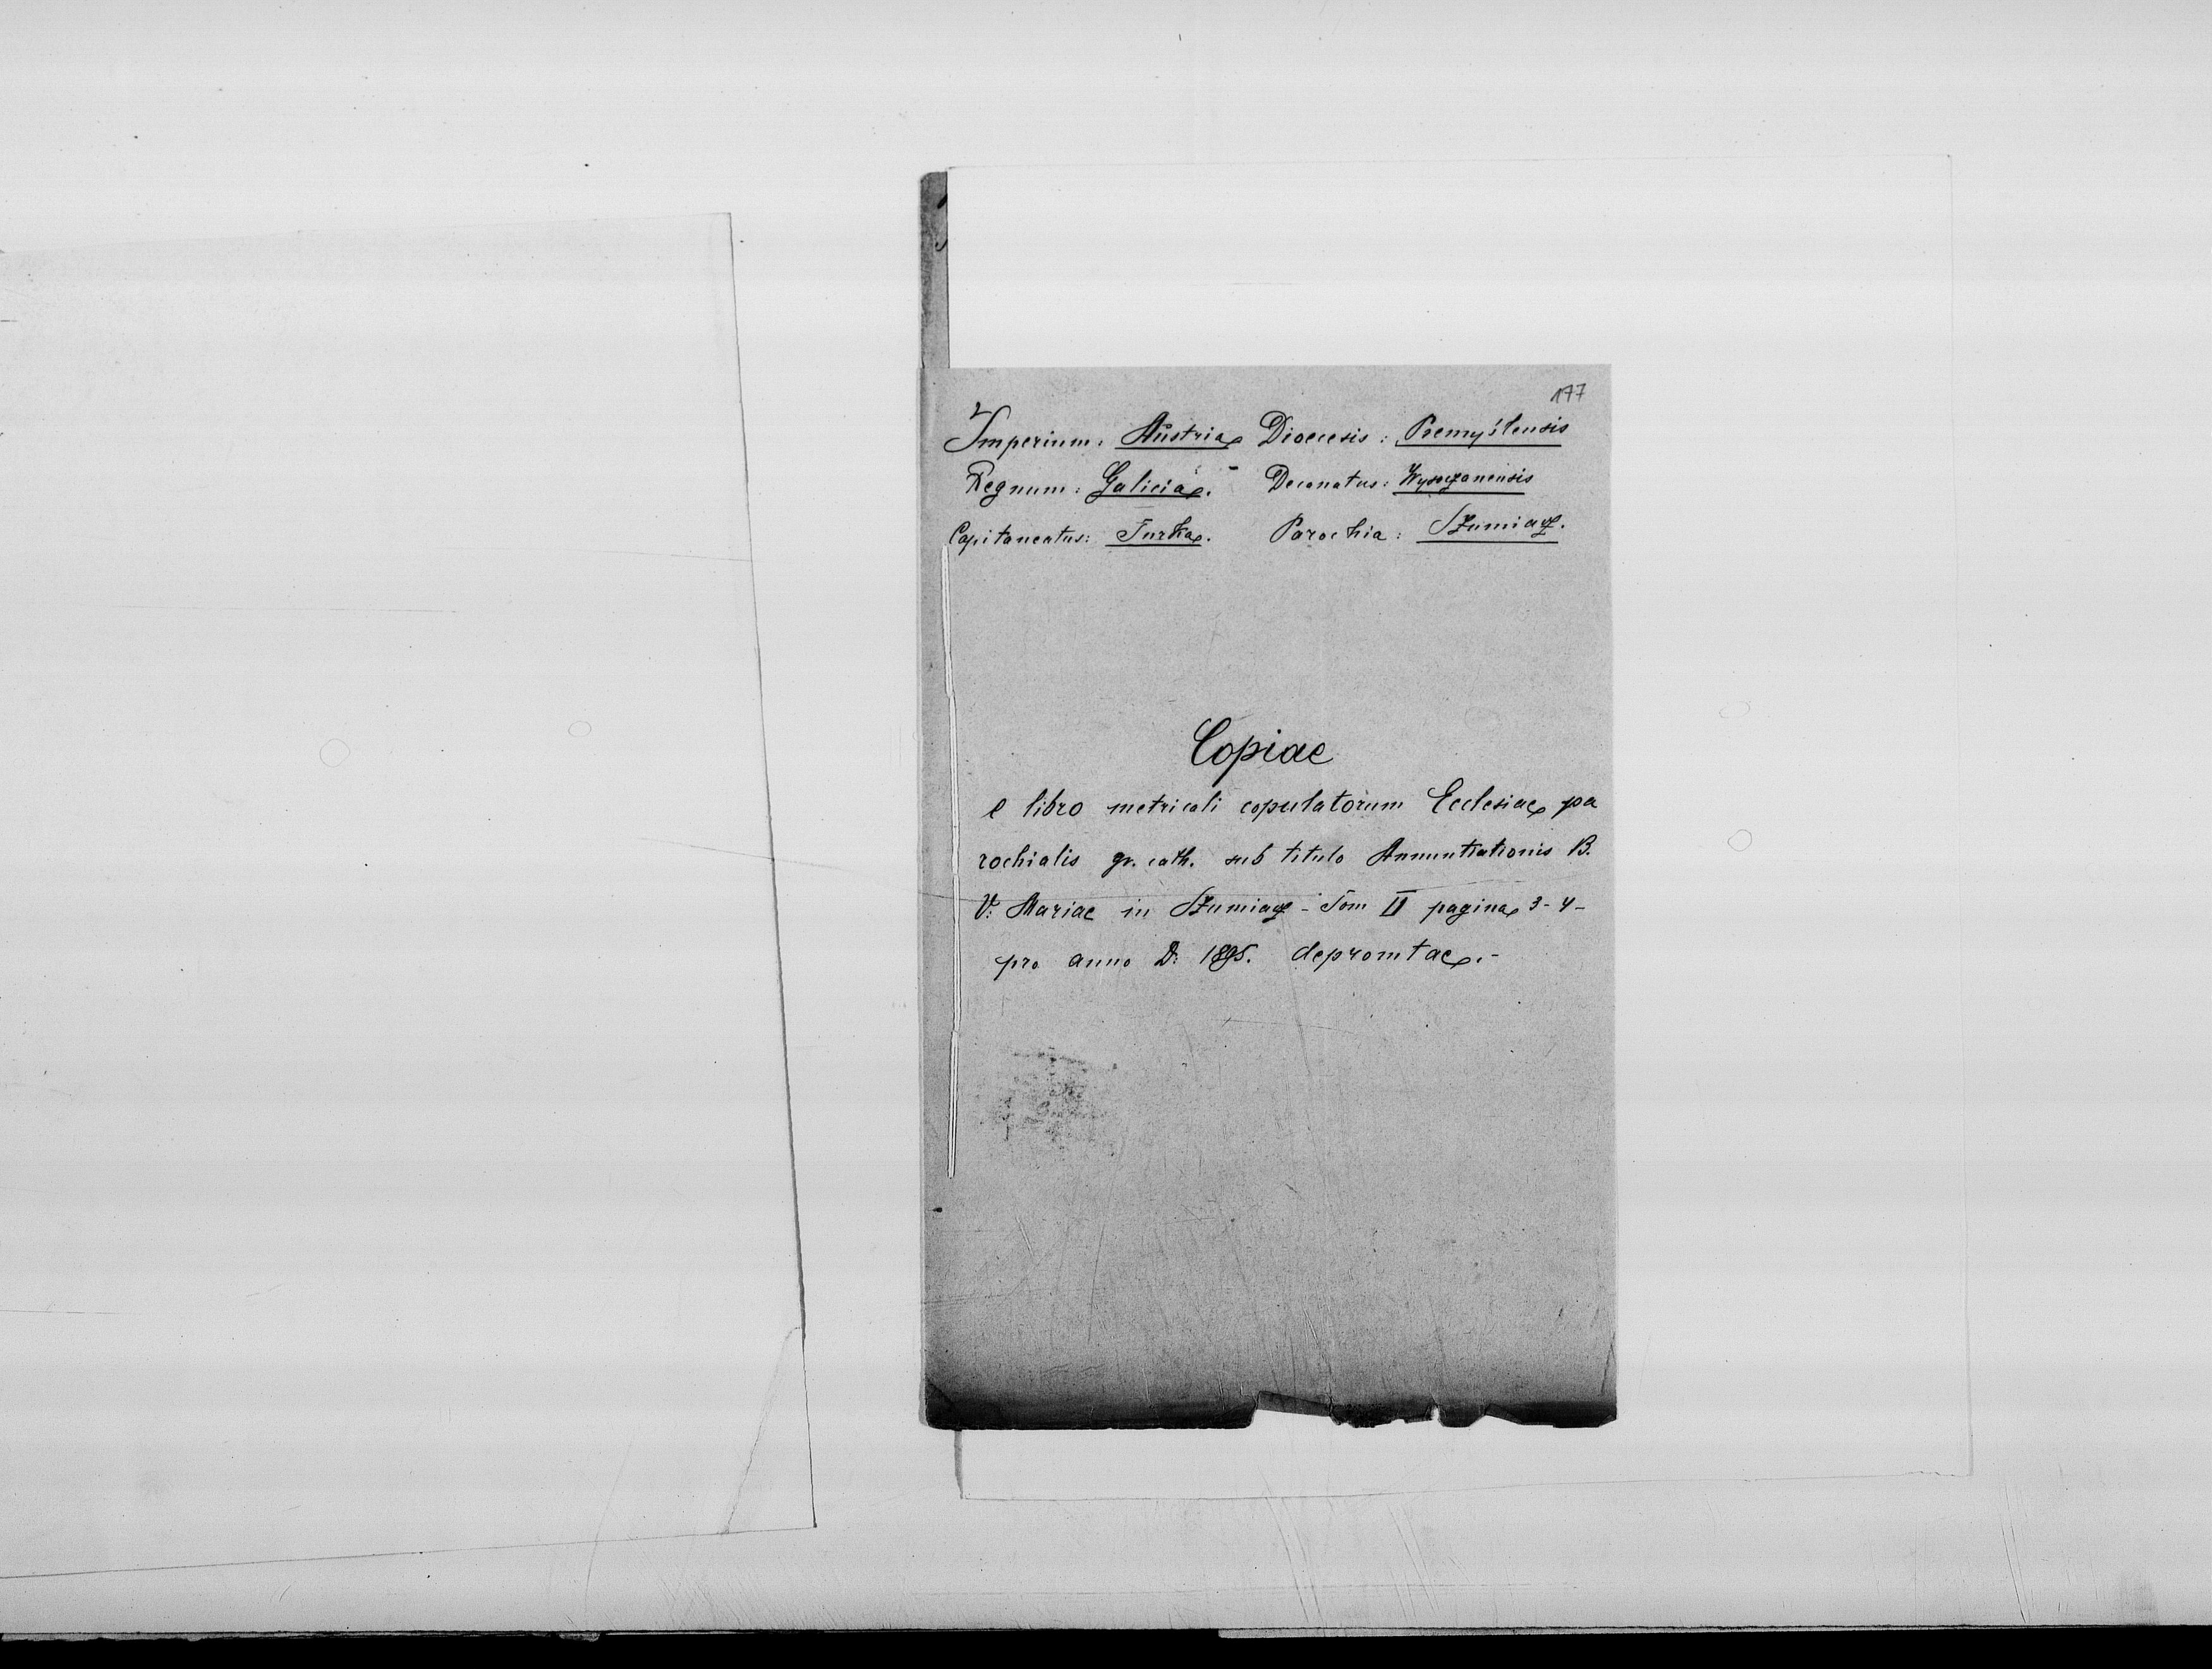 177
Imperium: Austriae Diocesis: Premyślensis
Regnum: Galiciae. Decanatus: Wysoczanensis
Capitaneatus: Turkae. Parochia: Szumiacz.
Copiae
e libro metricali copulatorum Ecclesiae pa
rochialis gr. cath. sub titulo Annuntiationis B.
V: Mariae in Szumiacz - Tom II paginae 3-4-
pro anno D: 1895. depromtae.-